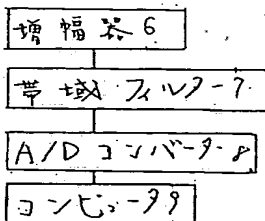 増幅器6
帯域フィルター7
A/Dコンバーター8
コンピュータ9